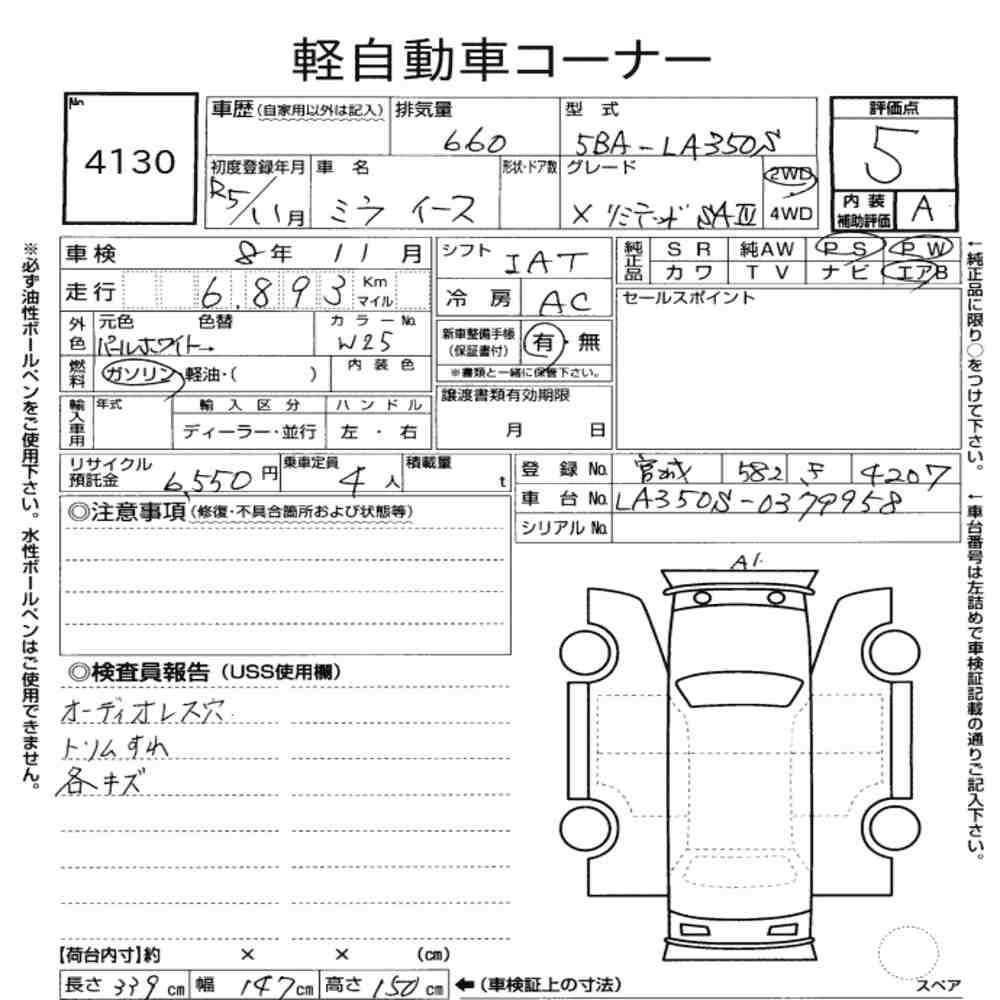 軽自動車コーナー
No. 4130
車歴(自家用以外は記入) 排気量 660 型式 5BA-LA350S 評価点 5
初度登録年月 R5/11月 車名 ミラ イース 形状・ドア数 グレード X リミテッド SAⅢ 2WD 4WD 内装補助評価 A
車検 8年 11月 シフト IAT 純正品 SR 純AW PS PW
カワ TV ナビ エアB
走行 6,893 Km マイル 冷房 AC セールスポイント
外色 元色 パールホワイト→ 色替 カラーNo. W25 新車整備手帳(保証書付) 有・無
※書類と一緒に保管下さい。
燃料 ガソリン・軽油・( ) 内装色
譲渡書類有効期限 月 日
輸入車用 年式 輸入区分 ハンドル
ディーラー・並行 左・右
リサイクル預託金 6,550円 乗車定員 4人 積載量 t 登録No. 宮城 582 4207
車台No. LA350S-0379958
シリアルNo.
◎注意事項(修復・不具合箇所および状態等)
A1
◎検査員報告(USS使用欄)
オーディオレス穴
トリムすれ
各キズ
【荷台内寸】約 × × (cm)
長さ 339cm 幅 147cm 高さ 150cm ←(車検証上の寸法)
スペア
※必ず油性ボールペンをご使用下さい。水性ボールペンはご使用できません。
←純正品に限り○をつけて下さい。
←車台番号は左詰めで車検証記載の通りご記入下さい。